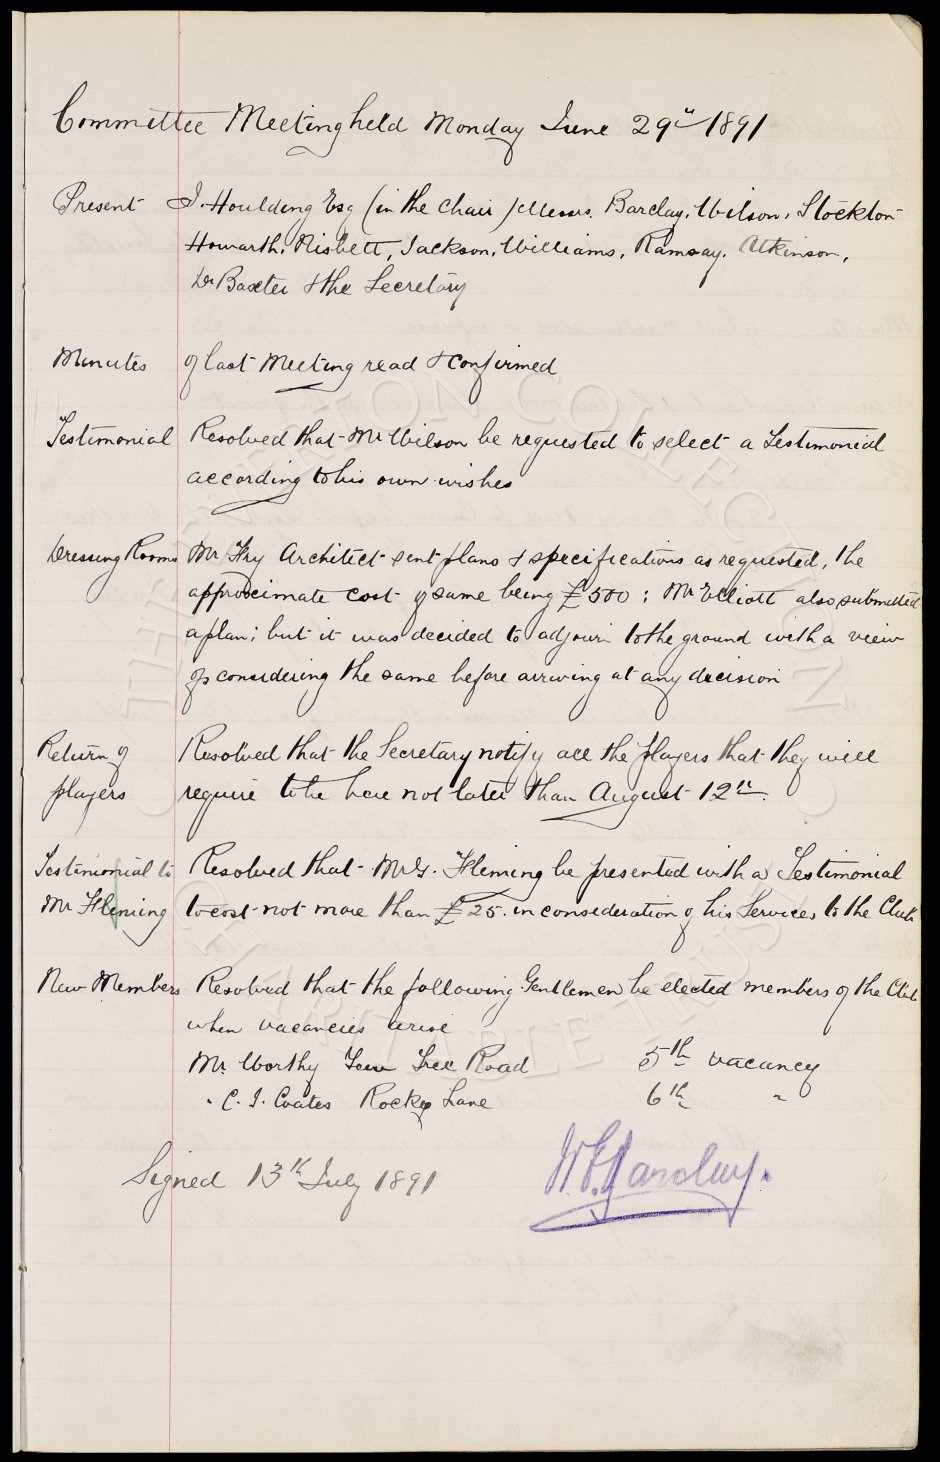 Committee Meeting held Monday June 29th 1891
Present J. Houlding Esq (in the chair) Messrs. Barclay, Wilson, Stockton
Howarth, Nisbett, Jackson, Williams, Ramsay, Atkinson,
Dr Baxter & the Secretary
Minutes of last Meeting read & confirmed
Testimonial Resolved that Mr Wilson be requested to select a Testimonial
according to his own wishes
Dressing Rooms Mr Fry Architect sent plans & specifications as requested, the
approximate cost of same being £500; Mr Elliott also submitted
a plan; but it was decided to adjourn to the ground with a view
of considering the same before arriving at any decision
Return of Resolved that the Secretary notify all the players that they will
players require to be here not later than August 12th.
Testimonial to Resolved that Mr G. Fleming be presented with a Testimonial
Mr Fleming to cost not more than £25. in consideration of his Services to the Club
New Members Resolved that the following Gentlemen be elected members of the Club
when vacancies arise
Mr. Worthy Yew Tree Road 5th vacancy
" C. J. Coates Rocky Lane 6th "
Signed 13th July 1891 W. F. Barclay.
THE EVERTON COLLECTION
CHARITABLE TRUST